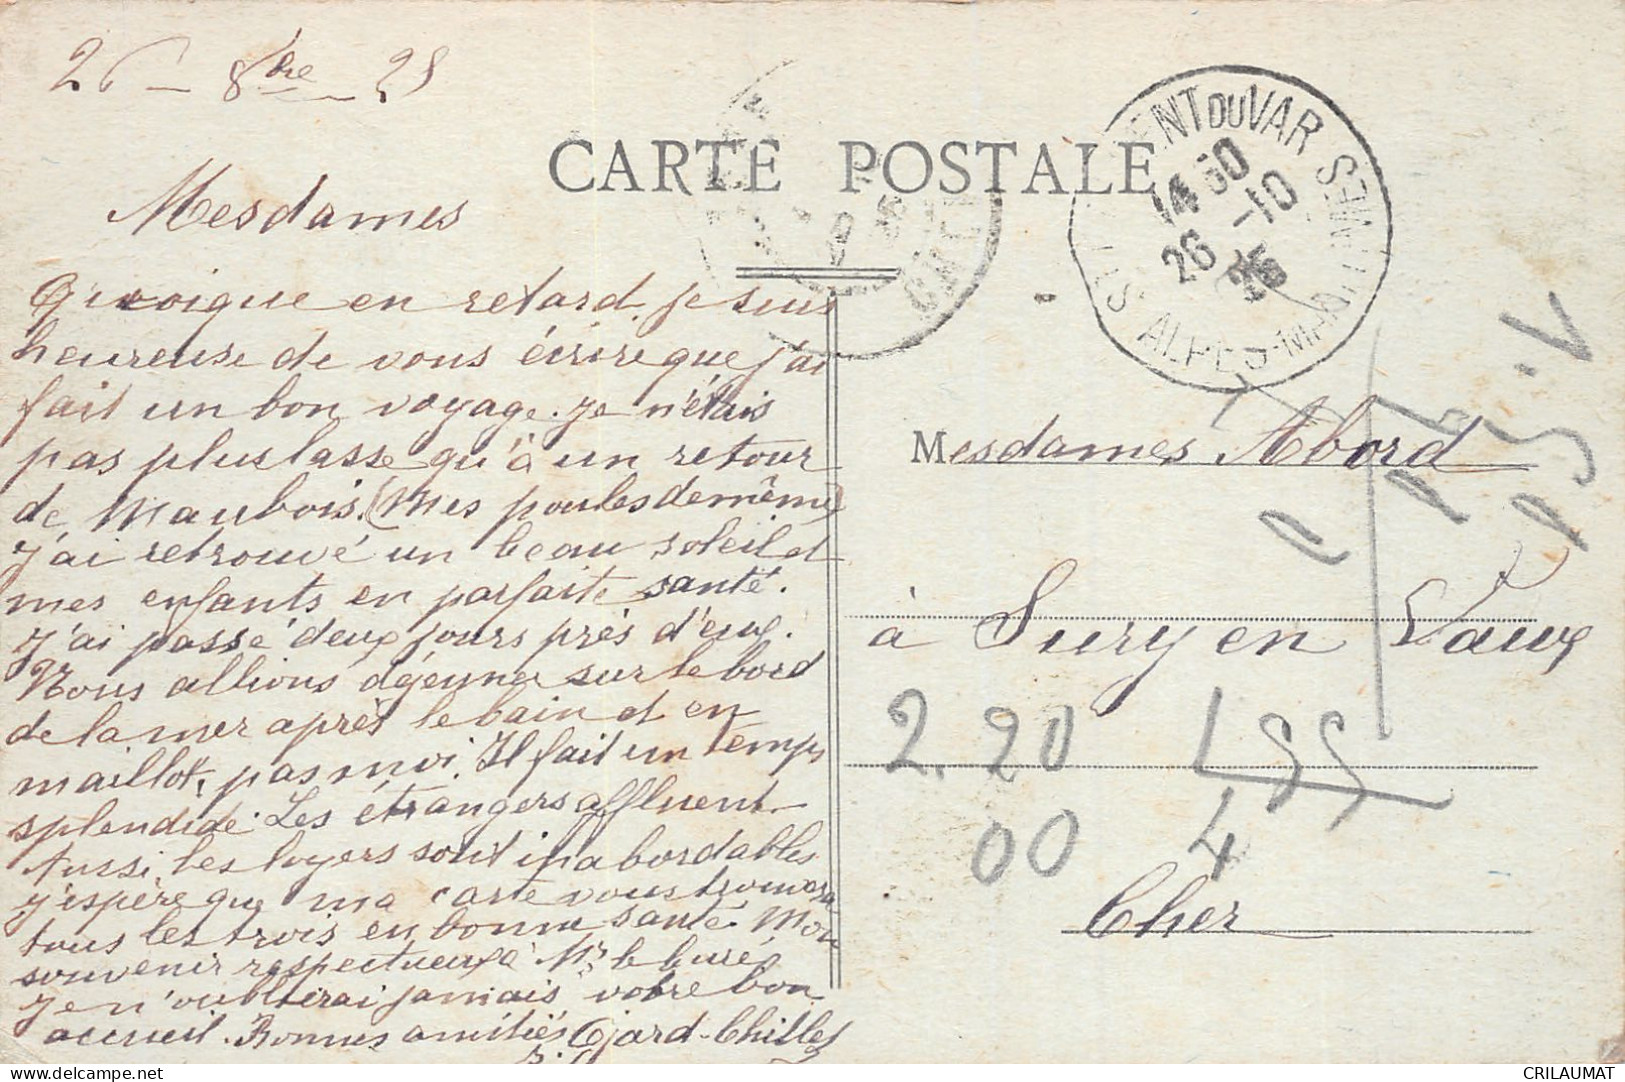 26 - 8bre - 25
CARTE POSTALE
ENT DU VAR
14 30
26 -10
25
ALPES-MAR
Mesdames
Quoique en retard, je suis
heureuse de vous écrire que j'ai
fait un bon voyage. Je n'étais
pas plus lasse qu'à un retour
de Maubois. (Mes poules de même)
J'ai retrouvé un beau soleil et
mes enfants en parfaite santé.
J'ai passé deux jours près d'eux.
Nous allions déjeuner sur le bord
de la mer après le bain et en
maillot, pas moi. Il fait un temps
splendide. Les étrangers affluent
Aussi, les loyers sont inabordables
j'espère que ma carte vous trouvera
tous les trois en bonne santé. Mon
souvenir respectueux à Mr le Curé
Je n'oublierai jamais votre bon
accueil. Bonnes amitiés
Mesdames Abord
à Sury en Vaux
2.20
00
4
Cher
delcampe.net
CRILAUMAT